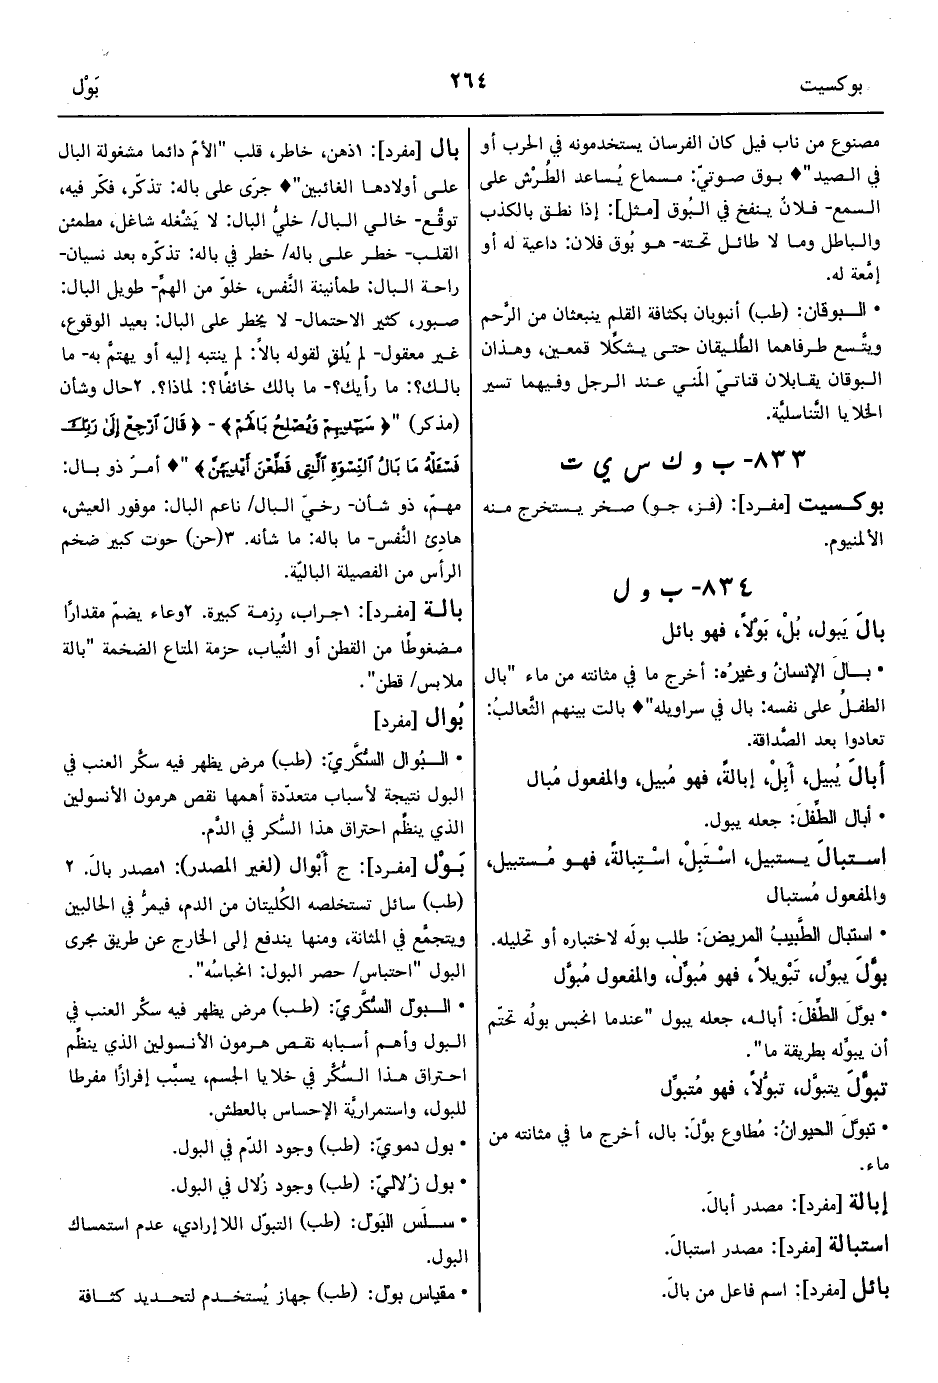 بوكسيت
٢٦٤
بَوْل
مصنوع من ناب فيل كان الفرسان يستخدمونه في الحرب أو
في الصيد"♦ بوق صوتيّ: مسماع يُساعد الطُرْش على
السمع- فلانٌ ينفخ في البُوق [مثل]: إذا نطق بالكذب
والباطل وما لا طائل تحته- هو بُوق فلان: داعية له أو
إمَّعة له.
• البوقان: (طب) أنبوبان بكثافة القلم ينبعثان من الرَّحم
ويتَّسع طرفاهما الطَّليقان حتى يشكِّلا قمعين، وهذان
البوقان يقابلان قناتيّ المَني عند الرجل وفيهما تسير
الخلايا التَّناسليَّة.
٨٣٣- ب و ك س ي ت
بوكسيت [مفرد]: (فز، جو) صخر يستخرج منه
الألمنيوم.
٨٣٤- ب و ل
بالَ يَبول، بُلْ، بَوْلاً، فهو بائل
• بالَ الإنسانُ وغيرُه: أخرج ما في مثانته من ماء "بال
الطفلُ على نفسه: بال في سراويله"♦ بالت بينهم الثَّعالبُ:
تعادوا بعد الصَّداقة.
أبالَ يُبيل، أَبِلْ، إبالةً، فهو مُبيل، والمفعول مُبال
• أبال الطِّفلَ: جعله يبول.
استبالَ يستبيل، اسْتَبِلْ، اسْتِبالةً، فهو مُستبيل،
والمفعول مُستبال
• استبال الطَّبيبُ المريضَ: طلب بولَه لاختباره أو تحليله.
بوَّلَ يبوِّل، تَبْويلاً، فهو مُبوِّل، والمفعول مُبوَّل
• بوَّلَ الطِّفلَ: أباله، جعله يبول "عندما انحبس بولُه تحتّم
أن يبوِّله بطريقة ما".
تبوَّلَ يتبوَّل، تبوُّلاً، فهو مُتبوِّل
• تبوَّلَ الحيوانُ: مُطاوع بوَّلَ: بال، أخرج ما في مثانته من
ماء.
إبالة [مفرد]: مصدر أبالَ.
استبالة [مفرد]: مصدر استبالَ.
بائل [مفرد]: اسم فاعل من بالَ.
بال [مفرد]: ١ذهن، خاطر، قلب "الأمّ دائما مشغولة البال
على أولادها الغائبين"♦ جرَى على باله: تذكّر، فكّر فيه،
توقَّع- خالي البال/ خليُّ البال: لا يَشْغله شاغل، مطمئن
القلب- خطر على باله/ خطر في باله: تذكّره بعد نسيان-
راحة البال: طمأنينة النَّفس، خلوّ من الهمِّ- طويل البال:
صبور، كثير الاحتمال- لا يخطر على البال: بعيد الوقوع،
غير معقول- لم يُلقِ لقوله بالاً: لم ينتبه إليه أو يهتمَّ به- ما
بالك؟: ما رأيك؟- ما بالك خائفًا؟: لماذا؟. ٢حال وشأن
(مذكر) "﴿سَيَهْدِيهِمْ وَيُصْلِحُ بَالَهُمْ﴾ - ﴿قَالَ ٱرْجِعْ إِلَىٰ رَبِّكَ
فَسْـَٔلْهُ مَا بَالُ ٱلنِّسْوَةِ ٱلَّٰتِي قَطَّعْنَ أَيْدِيَهُنَّ﴾"♦ أمرٌ ذو بال:
مهمّ، ذو شأن- رخيّ البال/ ناعم البال: موفور العيش،
هادِئ النَّفس- ما باله: ما شأنه. ٣(حن) حوت كبير ضخم
الرأس من الفصيلة الباليّة.
بالة [مفرد]: ١جراب، رِزمة كبيرة. ٢وعاء يضمّ مقدارًا
مضغوطًا من القطن أو الثِّياب، حزمة المتاع الضخمة "بالة
ملابس/ قطن".
بُوال [مفرد]
• البُوال السُّكَّريّ: (طب) مرض يظهر فيه سكَّر العنب في
البول نتيجة لأسباب متعدّدة أهمها نقص هرمون الأنسولين
الذي ينظِّم احتراق هذا السُّكر في الدَّم.
بَوْل [مفرد]: ج أبْوال (لغير المصدر): ١مصدر بالَ. ٢
(طب) سائل تستخلصه الكُليتان من الدم، فيمرُّ في الحالبين
ويتجمَّع في المثانة، ومنها يندفع إلى الخارج عن طريق مجرى
البول "احتباس/ حصر البول: انحباسُه".
• البول السُّكَّريّ: (طب) مرض يظهر فيه سكَّر العنب في
البول وأهم أسبابه نقص هرمون الأنسولين الذي ينظِّم
احتراق هذا السُّكَّر في خلايا الجسم، يسبِّب إفرازًا مفرطا
للبول، واستمراريَّة الإحساس بالعطش.
• بول دمويّ: (طب) وجود الدّم في البول.
• بول زُلاليّ: (طب) وجود زُلال في البول.
• سلَس البَول: (طب) التبوّل اللاإرادي، عدم استمساك
البول.
• مقياس بول: (طب) جهاز يُستخدم لتحديد كثافة